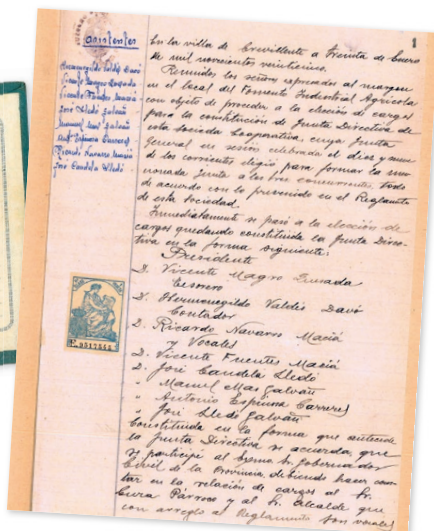 1
Asistentes
Hermenegildo Valdés Davó
Vicente Magro Quesada
Vicente Fuentes Maciá
José Lledó Galvañ
Manuel Mas Galvañ
Antº Espinosa Carreres
Ricardo Navarro Maciá
José Candela Lledó
En la villa de Crevillente a treinta de Enero
de mil novecientos veinticinco.
Reunidos los señores expresados al margen
en el local del Fomento Industrial Agrícola
con objeto de proceder a la elección de cargos
para la constitución de Junta Directiva de
esta sociedad Cooperativa, cuya Junta
General en sesión celebrada el diez y nueve
de los corrientes eligió para formar la
nonada Junta a los Sres concurrentes, todo
de acuerdo con lo prevenido en el Reglamento
de esta Sociedad.
Inmediatamente se pasó a la elección de
cargos quedando constituida la Junta Direc-
tiva en la forma siguiente:
Presidente
D. Vicente Magro Quesada
Tesorero
D. Hermenegildo Valdés Davó
Contador
D. Ricardo Navarro Maciá
y Vocales
D. Vicente Fuentes Maciá
D. José Candela Lledó
" Manuel Mas Galvañ
" Antonio Espinosa Carreres
" José Lledó Galvañ
Constituida en la forma que antecede
la Junta Directiva se acuerda que
se participe al Exmo Sr. Gobernador
Civil de la Provincia, debiendo hacer cons-
tar en la relación de cargos al Sr.
Cura Párroco y al Sr. Alcalde que
con arreglo al Reglamento son vocales